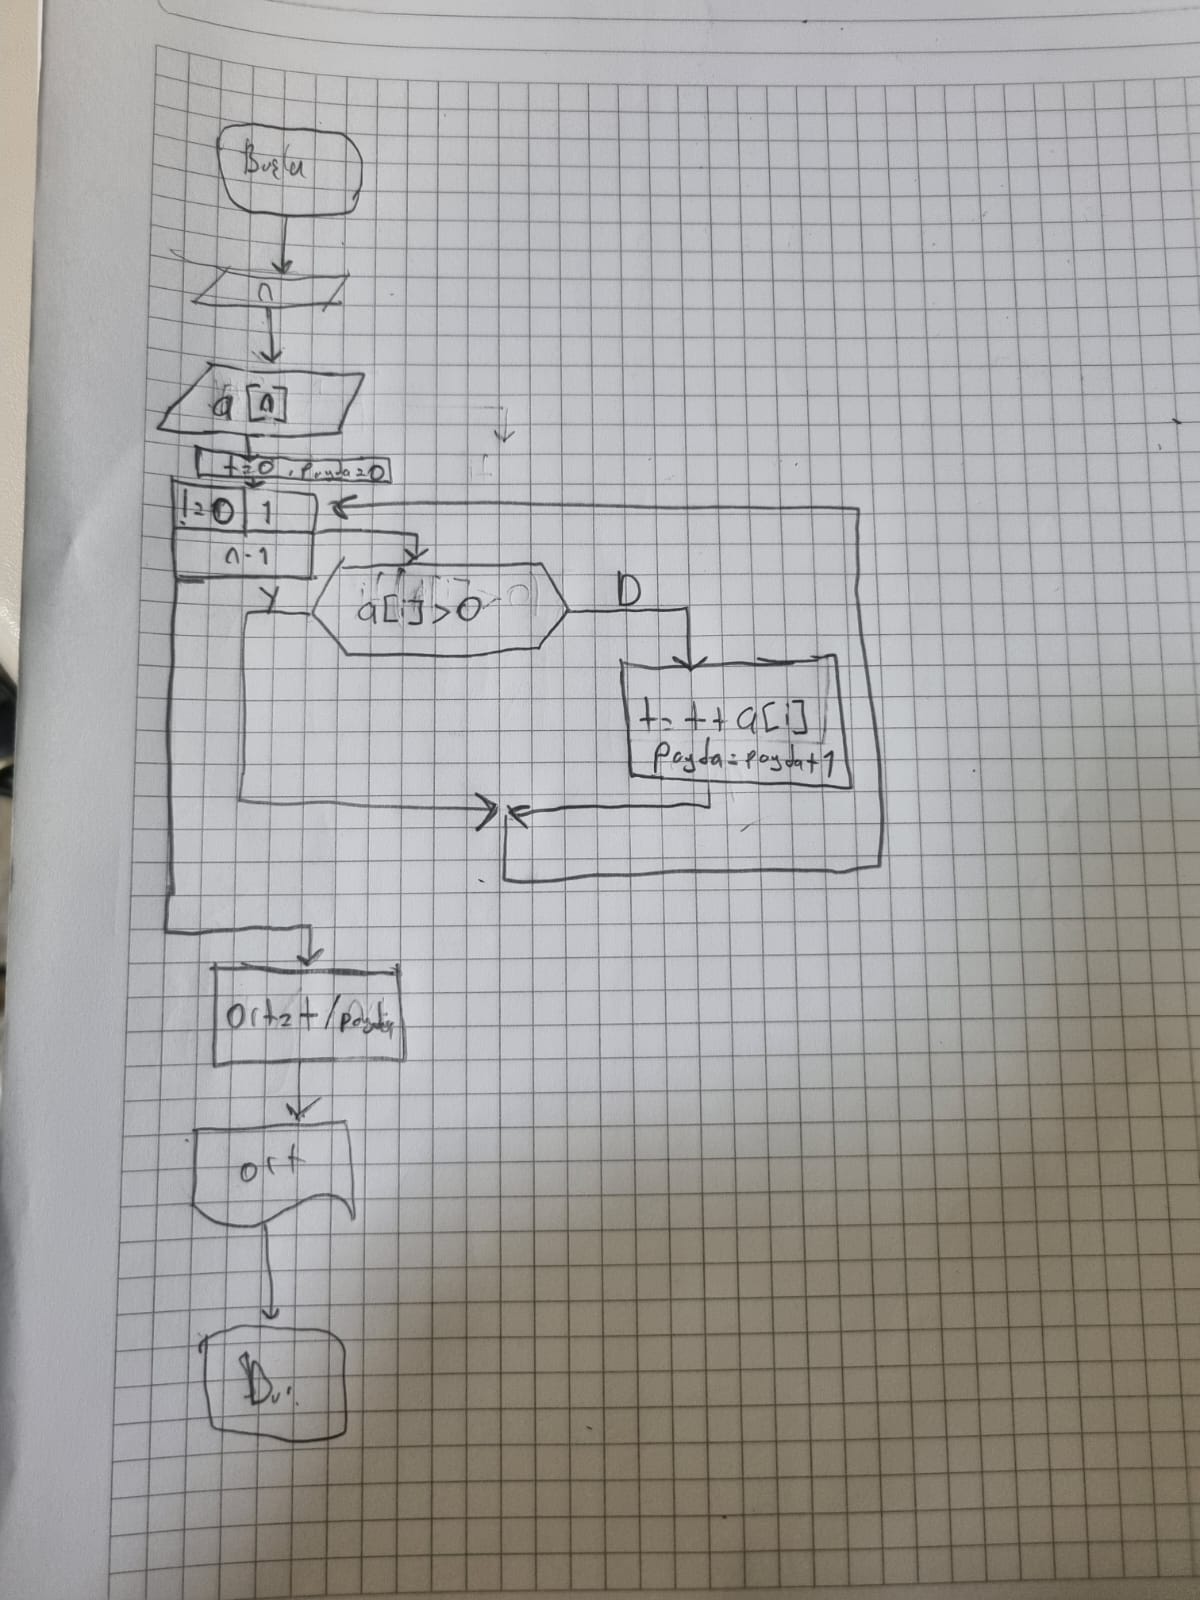 Başla
n
a [n]
t=0, payda=0
i=0 1
n-1
a[i]>0
D
Y
t= t+ a[i]
Payda=payda+1
Ort= t/payda
ort
Dur